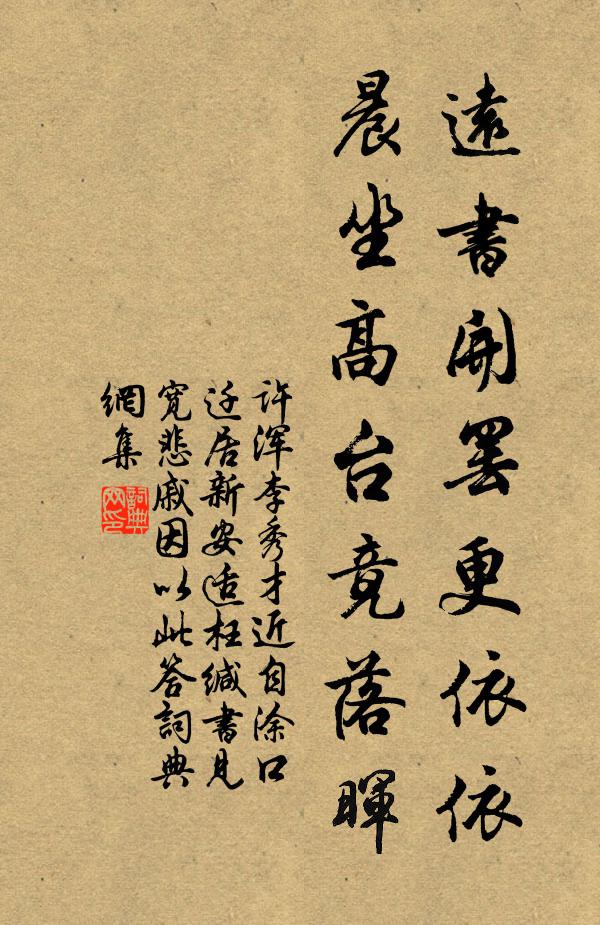 遠書開罢更依依
晨坐高台竟落暉
许浑李秀才近自涂口
迁居新安适枉缄書見
寛悲戚因以此答詞典
網集
詞典
网印